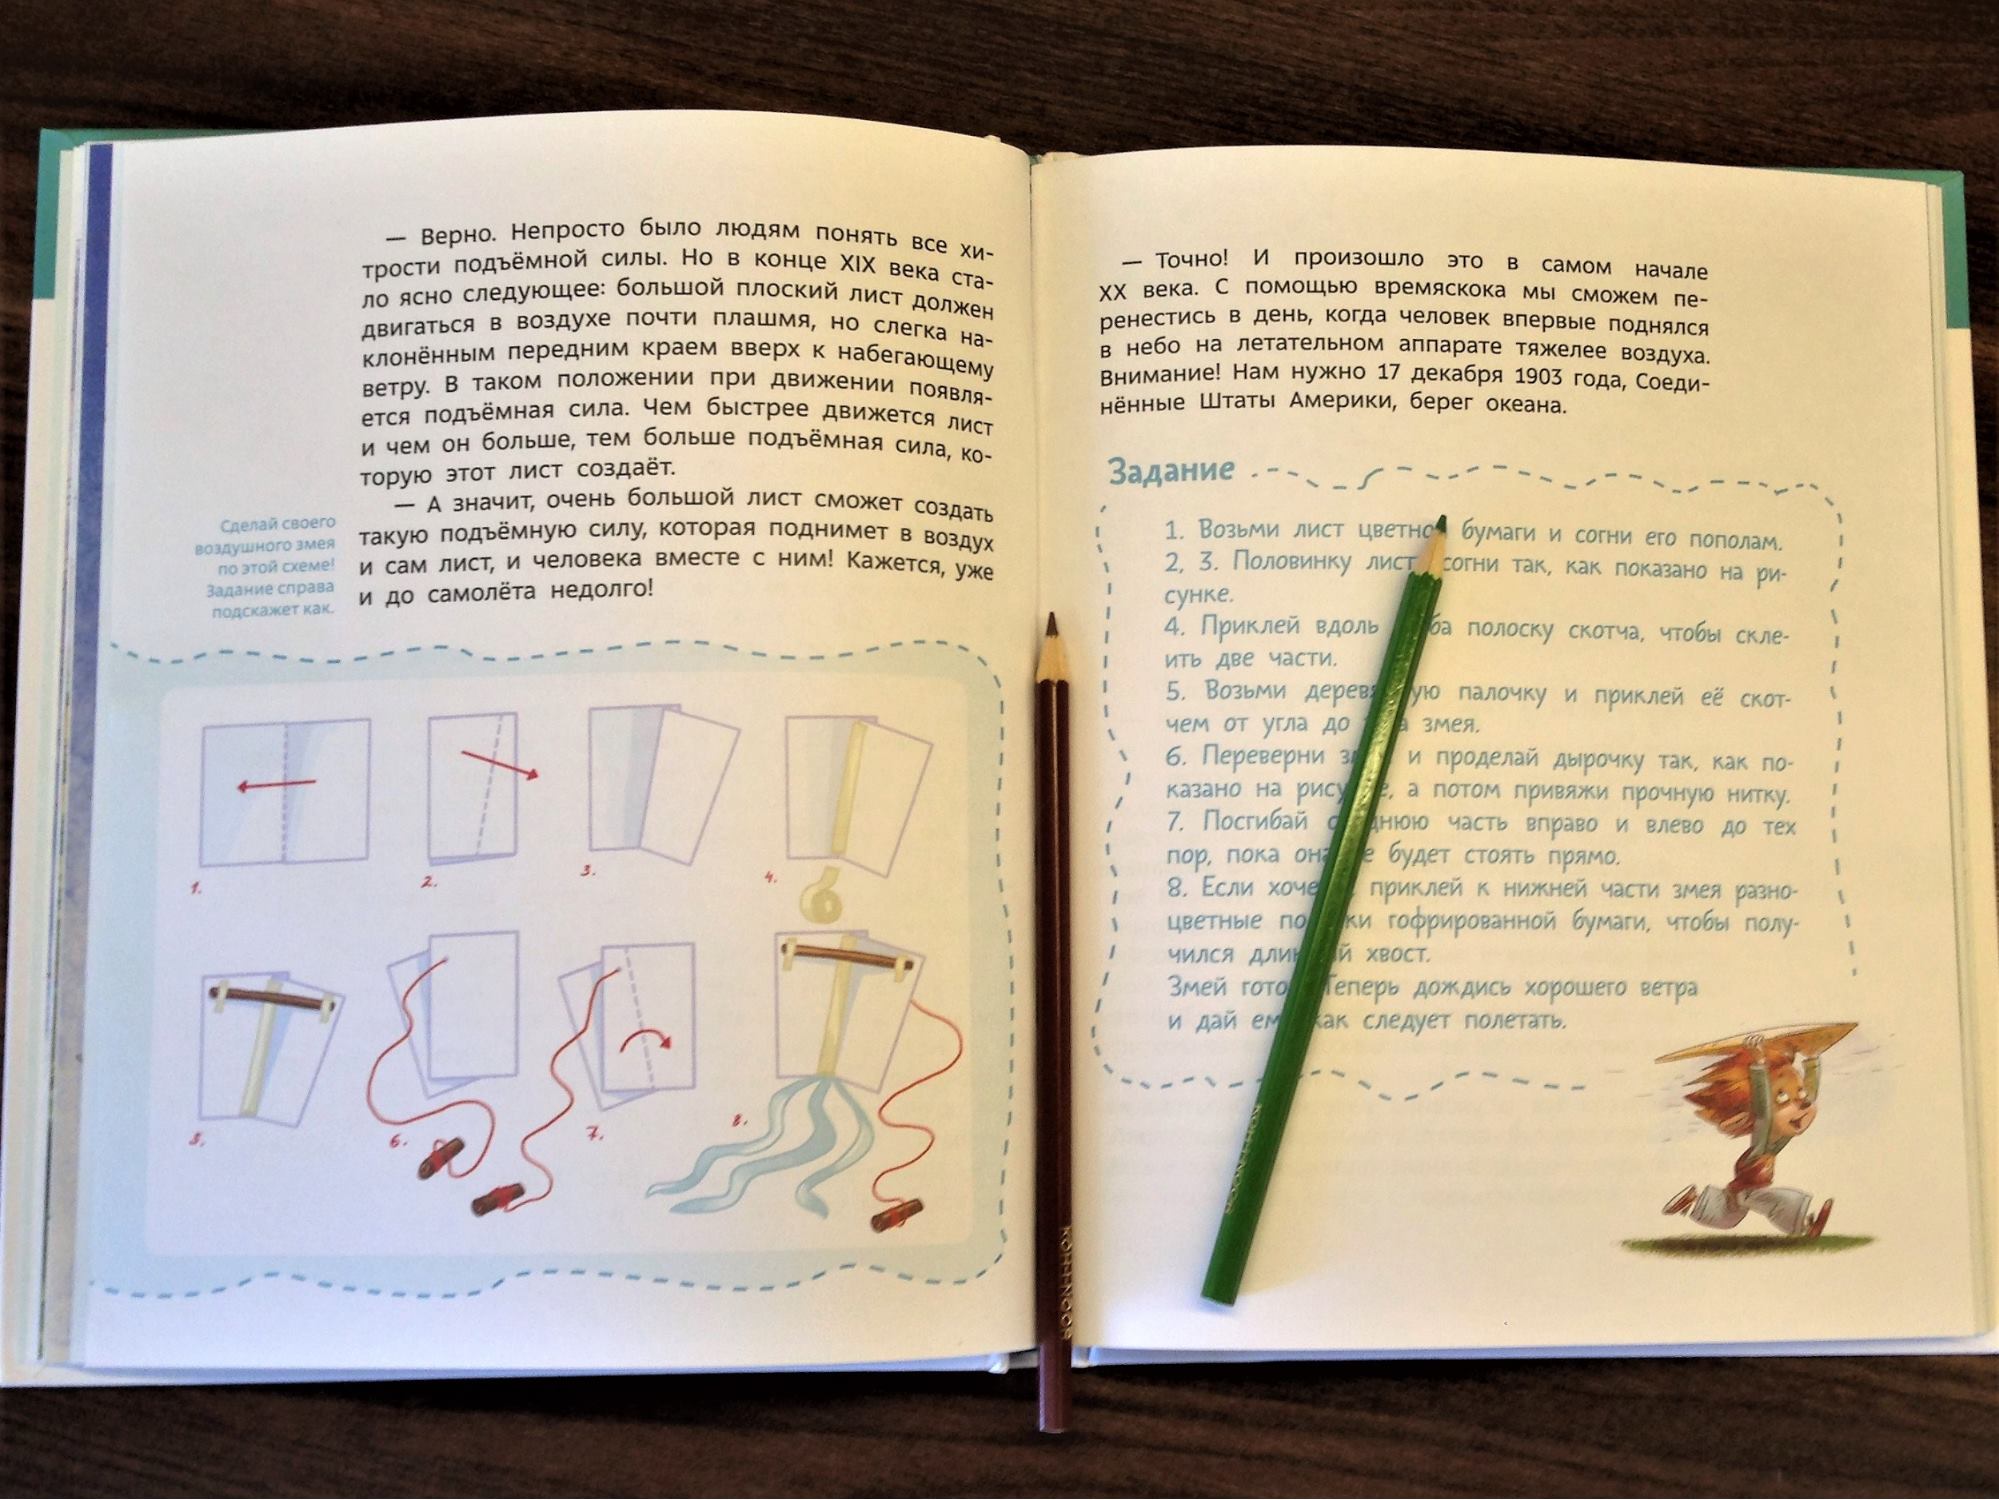 — Верно. Непросто было людям понять все хи-
трости подъёмной силы. Но в конце XIX века ста-
ло ясно следующее: большой плоский лист должен
двигаться в воздухе почти плашмя, но слегка на-
клонённым передним краем вверх к набегающему
ветру. В таком положении при движении появля-
ется подъёмная сила. Чем быстрее движется лист
и чем он больше, тем больше подъёмная сила, ко-
торую этот лист создаёт.
— А значит, очень большой лист сможет создать
такую подъёмную силу, которая поднимет в воздух
и сам лист, и человека вместе с ним! Кажется, уже
и до самолёта недолго!
Сделай своего
воздушного змея
по этой схеме!
Задание справа
подскажет как.
1.
2.
3.
4.
5.
6.
7.
8.
— Точно! И произошло это в самом начале
XX века. С помощью времяскока мы сможем пе-
ренестись в день, когда человек впервые поднялся
в небо на летательном аппарате тяжелее воздуха.
Внимание! Нам нужно 17 декабря 1903 года, Соеди-
нённые Штаты Америки, берег океана.
Задание
1. Возьми лист бумаги и согни его пополам.
2, 3. Половинку согни так, как показано на ри-
сунке.
4. Приклей вдоль полоску скотча, чтобы скле-
ить две части.
5. Возьми палочку и приклей её скот-
чем от угла до змея.
6. Переверни и проделай дырочку так, как по-
казано на а потом привяжи прочную нитку.
7. Посгибай часть вправо и влево до тех
пор, пока будет стоять прямо.
8. Если приклей к нижней части змея разно-
цветные гофрированной бумаги, чтобы полу-
чился хвост.
Змей Теперь дождись хорошего ветра
и дай как следует полетать.
KOH-I-NOOR